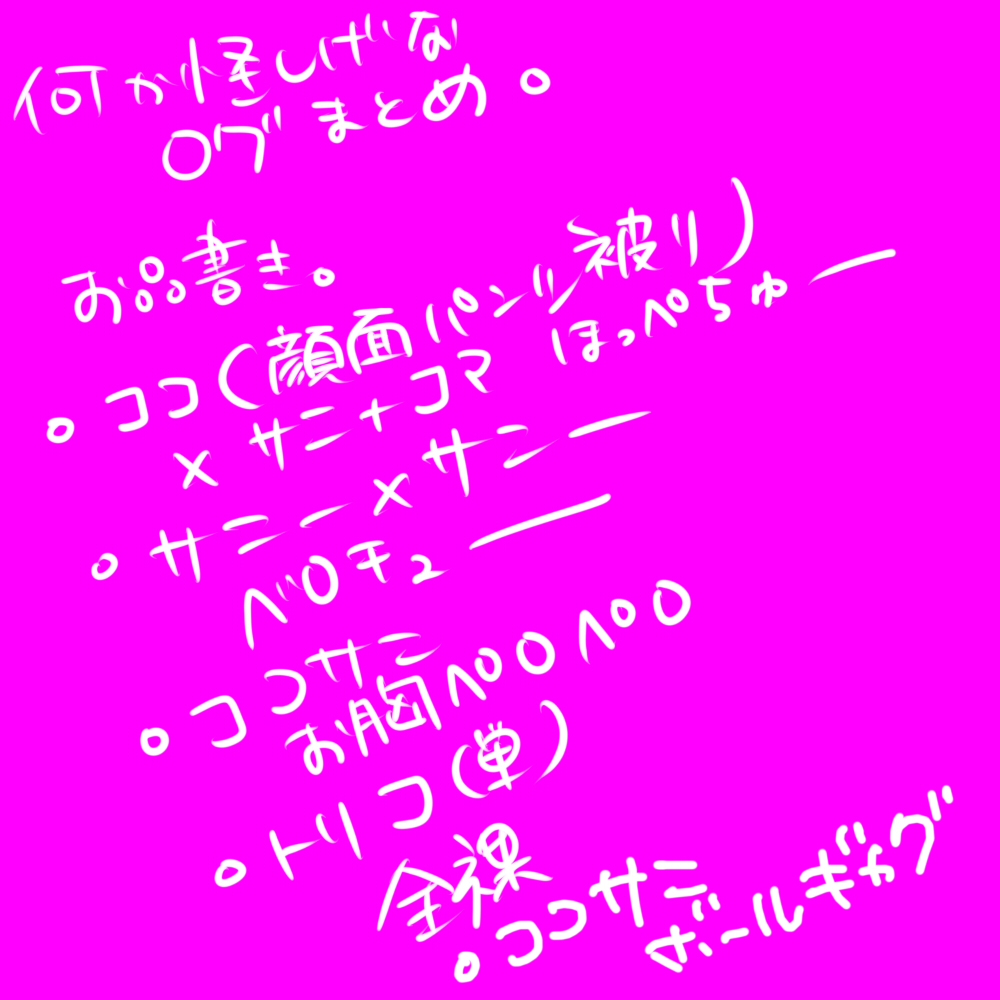 何か怪しげな
ログまとめ。
お品書き。
・ココ(顔面パンツ被り)
×サニ+コマ ほっぺちゅー
・サニー×サニー
ベロチュー
・ココサニ
お胸ペロペロ
・トリコ(単)
全裸
・ココサニ
ボールギャグ